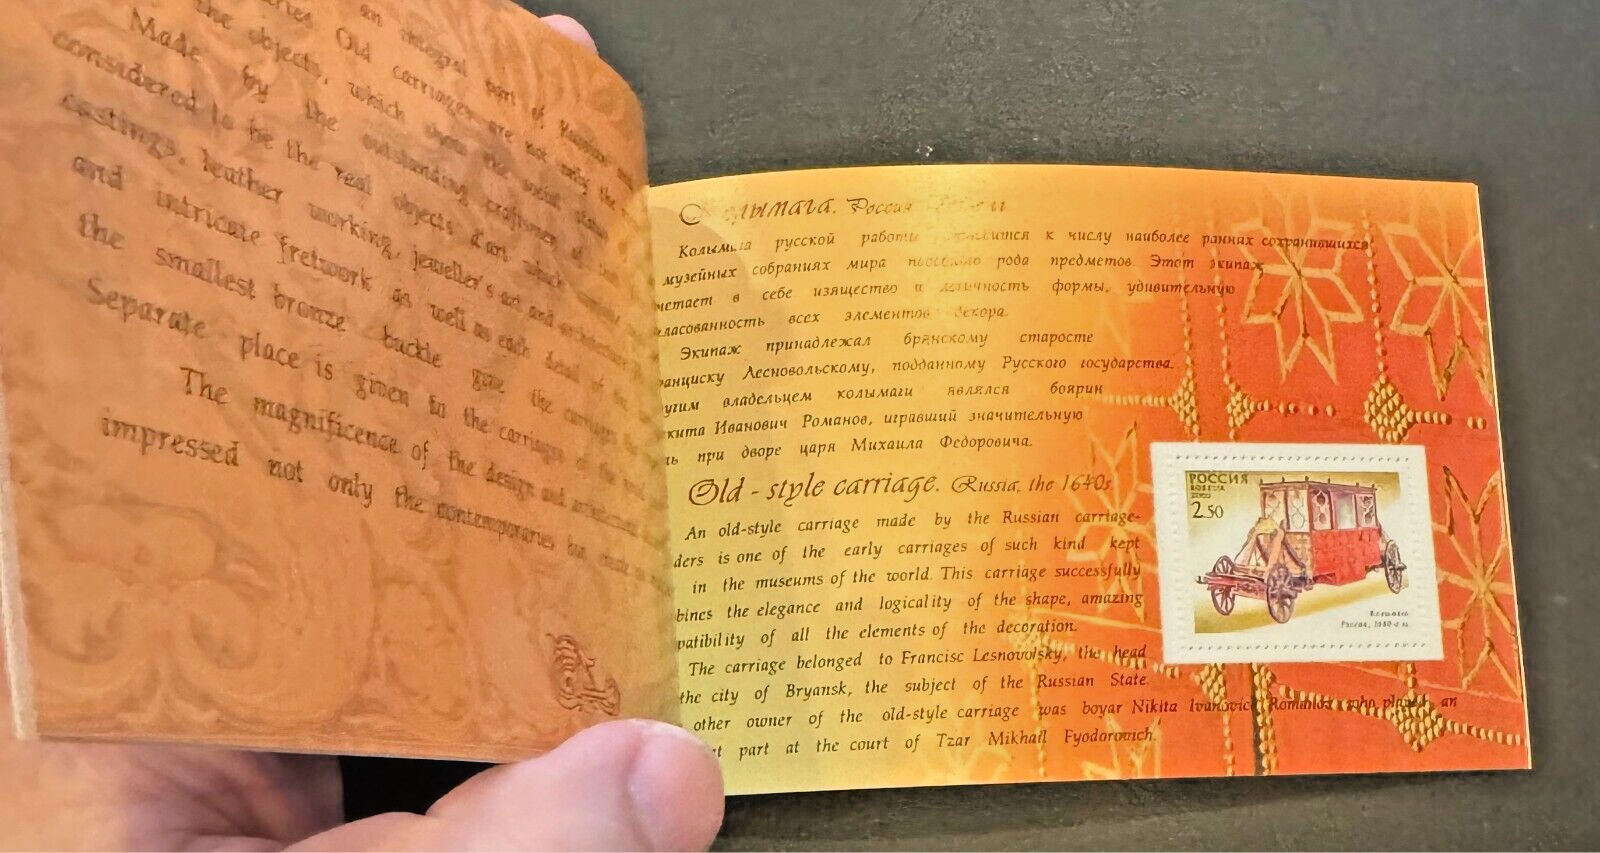 an integral part of
Old carriages are not only the
the objects, which show the social status
Made by the outstanding craftsmen of
considered to be the real objects d'art which
castings, leather working, jeweller's art and
and intricate fretwork as well as each detail of the
the smallest bronze buckle give the carriages
Separate place is given to the carriages of the
The magnificence of the design and
impressed not only the contemporaries but
Колымага. Россия
Колымага русской работы относится к числу наиболее ранних сохранившихся
музейных собраниях мира подобного рода предметов. Этот экипаж
четает в себе изящество и логичность формы, удивительную
ласованность всех элементов декора.
Экипаж принадлежал брянскому старосте
ранциску Лесновольскому, подданному Русского государства.
угим владельцем колымаги являлся боярин
кита Иванович Романов, игравший значительную
ль при дворе царя Михаила Федоровича.
Old - style carriage. Russia, the 1640s.
An old-style carriage made by the Russian carriage-
ders is one of the early carriages of such kind kept
in the museums of the world. This carriage successfully
bines the elegance and logicality of the shape, amazing
patibility of all the elements of the decoration.
The carriage belonged to Francisc Lesnovolsky, the head
the city of Bryansk, the subject of the Russian State.
other owner of the old-style carriage was boyar Nikita Ivanovich Romanov who played an
part at the court of Tzar Mikhail Fyodorovich.
РОССИЯ
ROSSIJA
2002
2.50
Колымага
Россия, 1640-е гг.